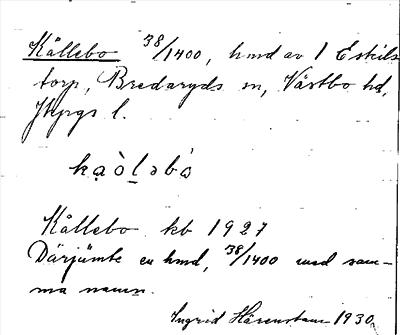 Kållebo 38/1400, hmd av 1 Eskils
torp, Bredaryds sn, Västbo hd,
Jkpgs l.
ka̤òl̠əbà
Kållebo kb 1927
Därjämte en hmd, 38/1400 med sam-
ma namn.
Ingrid Härenstam 1930.